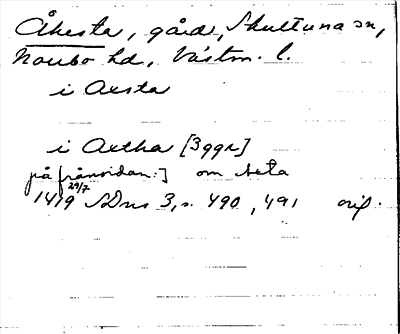 Åkesta, gård, Skultuna sn,
Norrbo hd, Västm. l.
i Aesta
i Aetha [3 ggr]
på frånsidan:] om Aeta
29/7
1419 SDns 3, s. 490, 491 orig.